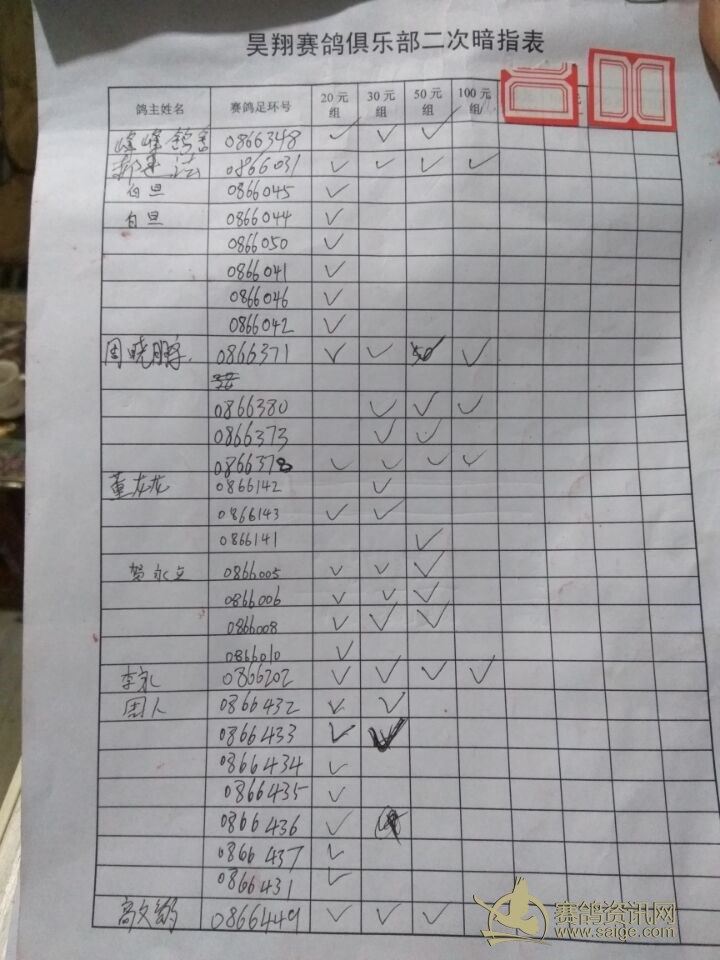 昊翔赛鸽俱乐部二次暗指表
鸽主姓名 赛鸽足环号 20元组 30元组 50元组 100元组
峰峰鸽舍 0866348 ✓ ✓ ✓
0866031 ✓ ✓ ✓ ✓
白旦 0866045 ✓
白旦 0866044 ✓
0866050 ✓
0866041 ✓
0866046 ✓
0866042 ✓
周晓鹏 0866371 ✓ ✓ 50 ✓
0866380 ✓ ✓ ✓
0866373 ✓ ✓
0866378 ✓ ✓ ✓ ✓
董龙龙 0866142 ✓
0866143 ✓ ✓
0866141 ✓
贺永立 0866005 ✓ ✓ ✓
0866006 ✓ ✓ ✓
0866008 ✓ ✓ ✓
0866010 ✓
李永 0866202 ✓ ✓ ✓ ✓
国人 0866432 ✓ ✓
0866433 ✓ ✓
0866434 ✓
0866435 ✓
0866436 ✓
0866437 ✓
0866431 ✓
高文 0866449 ✓ ✓ ✓
赛鸽资讯网
www.saigc.com